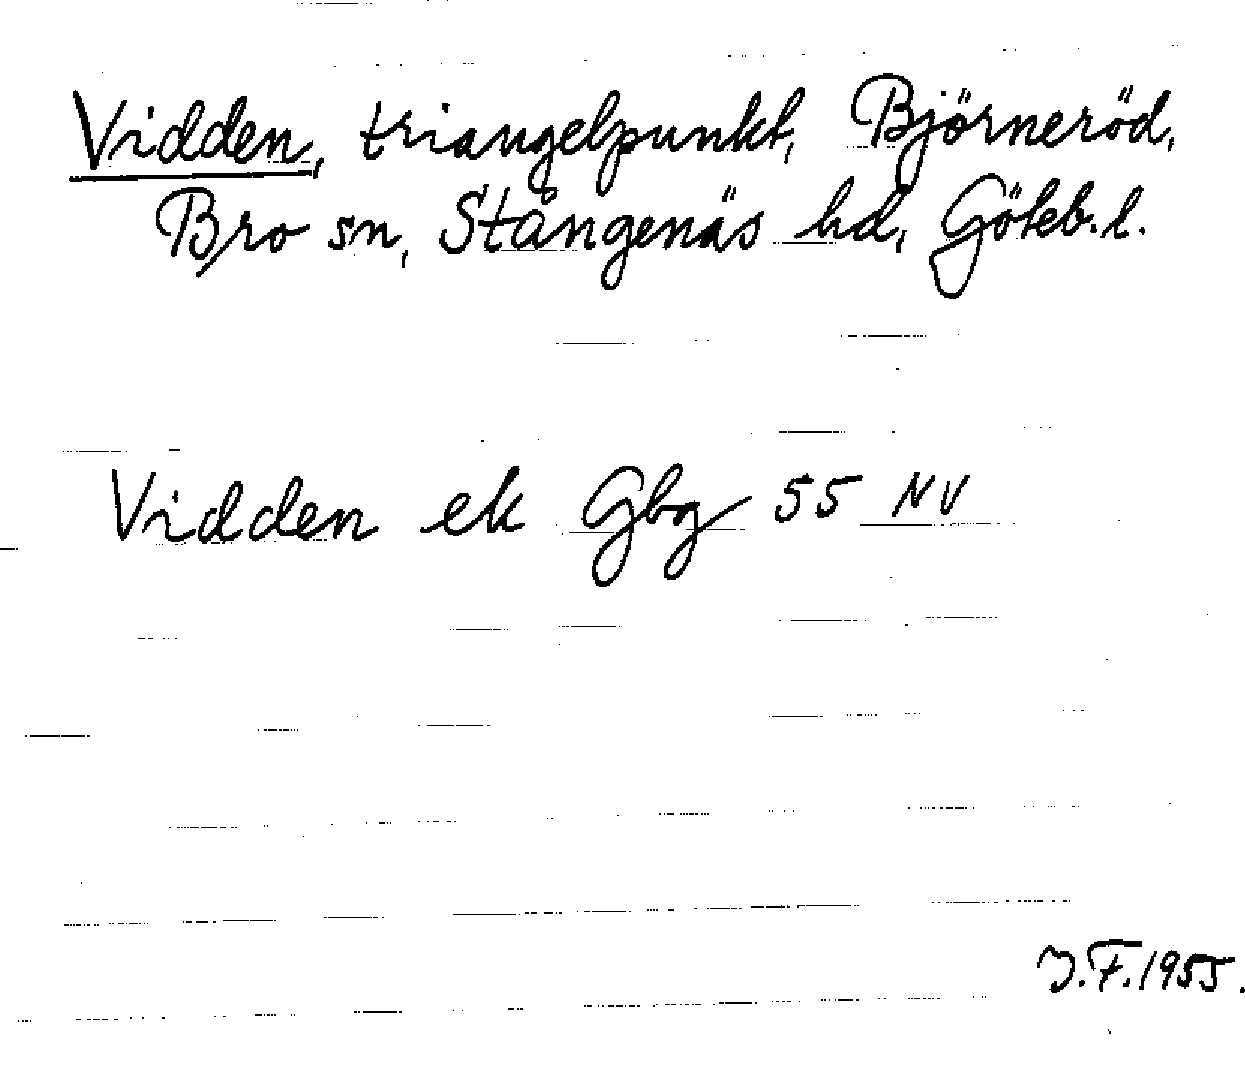 Vidden, triangelpunkt, Björneröd,
Bro sn, Stångenäs hd, Göteb. l.
Vidden ek Gbg 55 NV
J.F. 1955.